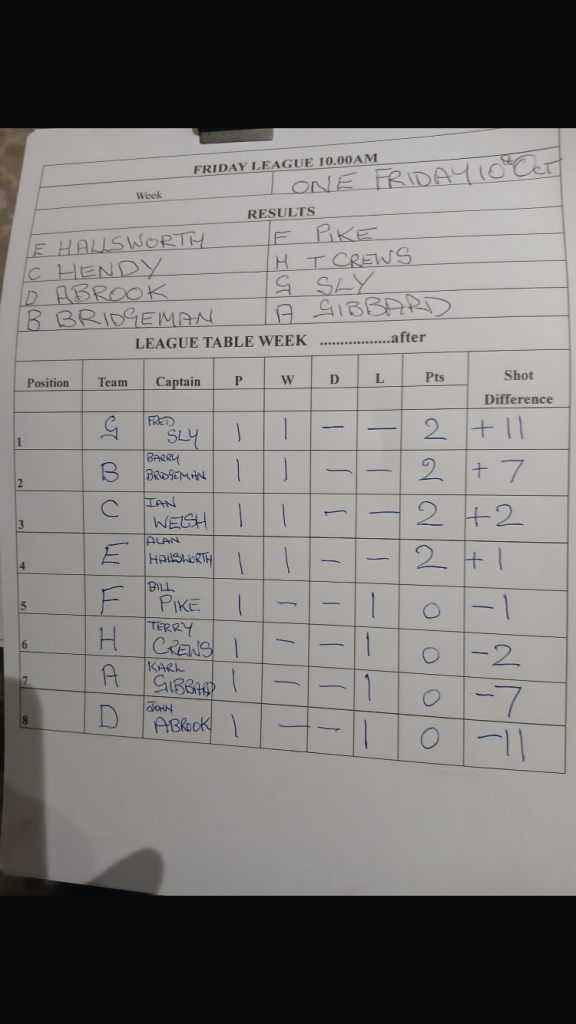 FRIDAY LEAGUE 10.00AM
Week ONE FRIDAY 10th Oct
RESULTS
E HALLSWORTH F PIKE
C HENDY H T CREWS
D ABROOK G SLY
B BRIDGEMAN A GIBBARD
LEAGUE TABLE WEEK .................after
Position Team Captain P W D L Pts Shot Difference
1 G FRED SLY 1 1 – – 2 +11
2 B BARRY BRIDGEMAN 1 1 – – 2 +7
3 C IAN WELSH 1 1 – – 2 +2
4 E ALAN HALLSWORTH 1 1 – – 2 +1
5 F BILL PIKE 1 – – 1 0 –1
6 H TERRY CREWS 1 – – 1 0 –2
7 A KARL GIBBARD 1 – – 1 0 –7
8 D JOHN ABROOK 1 – – 1 0 –11